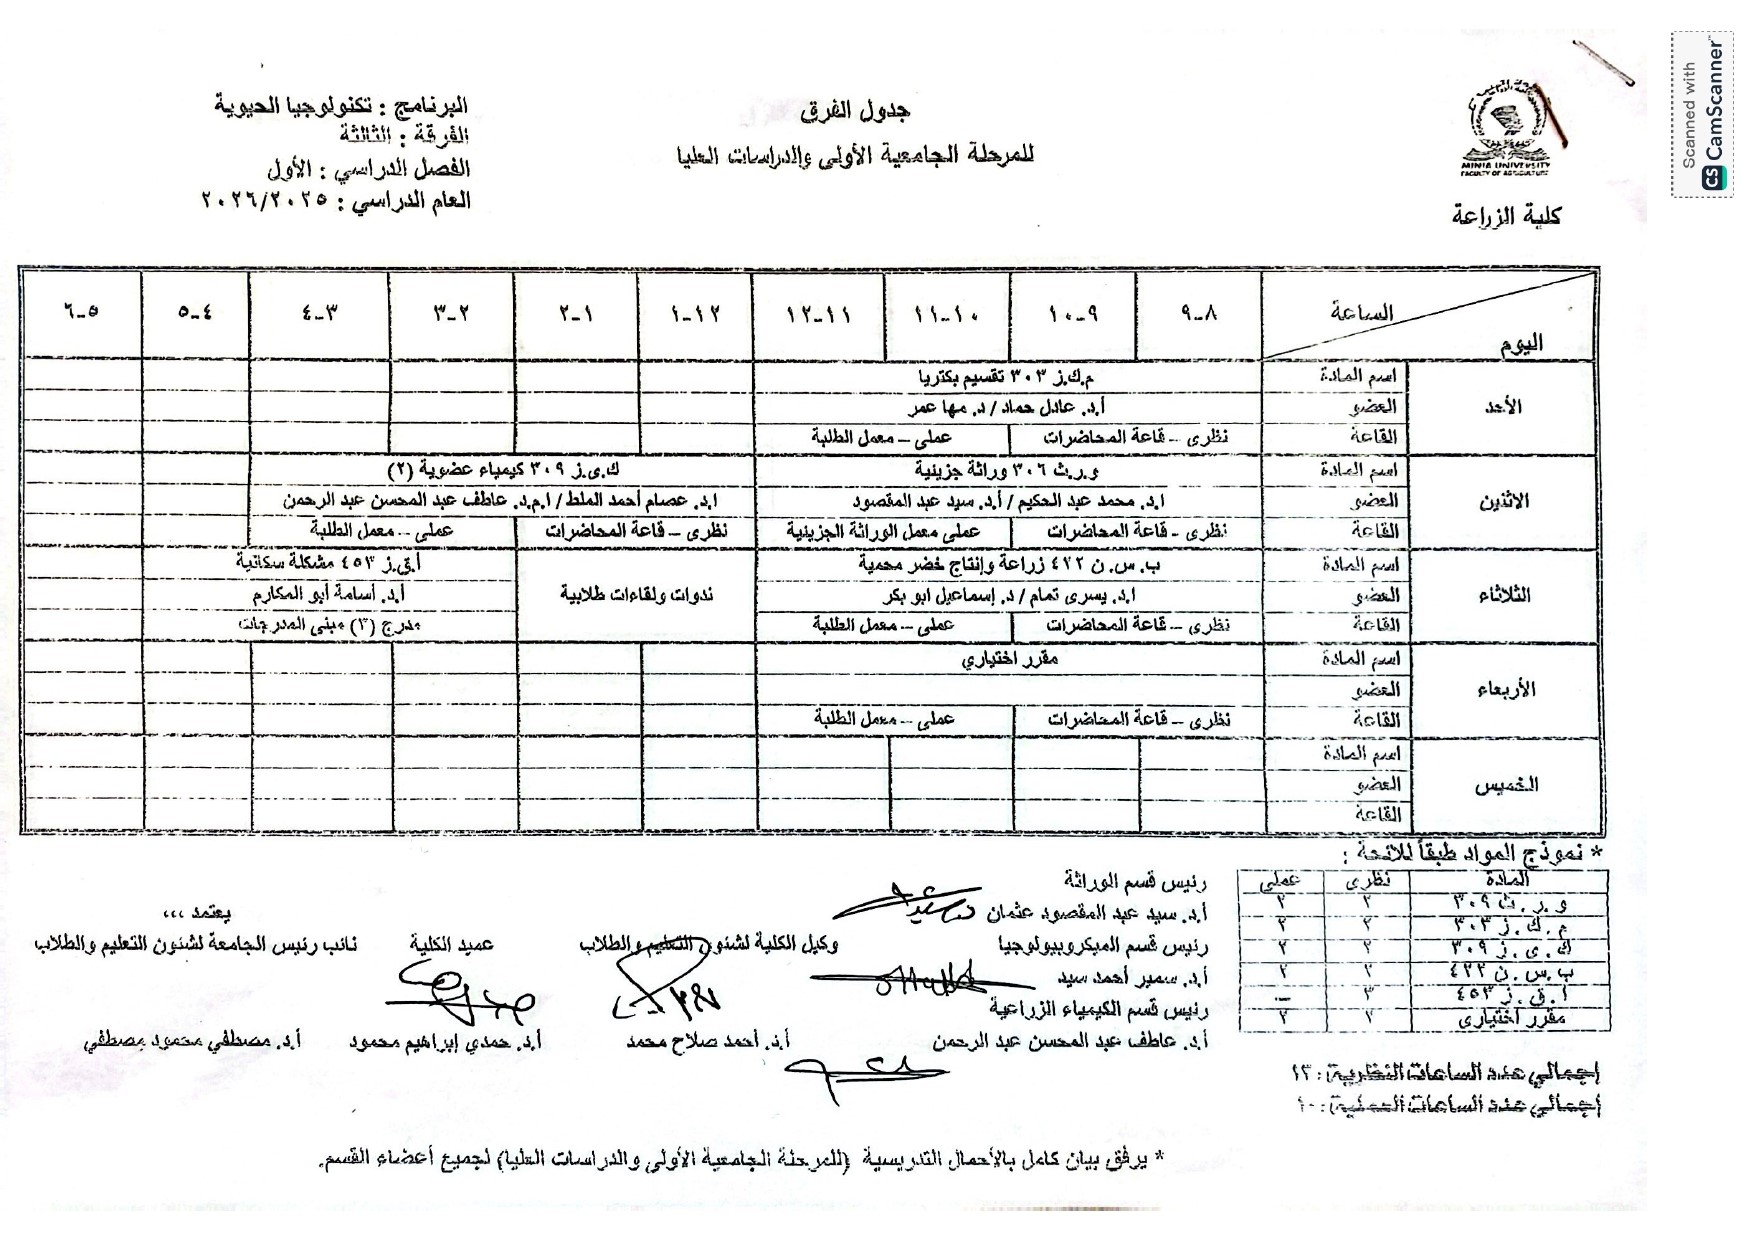 Scanned with
CS CamScanner
MINIA UNIVERSITY
FACULTY OF AGRICULTURE
كلية الزراعة
جدول الفرق
للمرحلة الجامعية الأولى والدراسات العليا
البرنامج : تكنولوجيا الحيوية
الفرقة : الثالثة
الفصل الدراسي : الأول
العام الدراسي : ٢٠٢٦/٢٠٢٥
الساعة
اليوم
٨-٩ ٩-١٠ ١٠-١١ ١١-١٢ ١٢-١ ١-٢ ٢-٣ ٣-٤ ٤-٥ ٥-٦
الأحد
اسم المادة م.ك.ز ٣٠٣ تقسيم بكتريا
العضو أ.د. عادل حماد / د. مها عمر
القاعة نظرى – قاعة المحاضرات عملى – معمل الطلبة
الاثنين
اسم المادة و.ر.ث ٣٠٦ وراثة جزيئية ك.ى.ز ٣٠٩ كيمياء عضوية (٢)
العضو ا.د. محمد عبد الحكيم / أ.د. سيد عبد المقصود ا.د. عصام أحمد الملط / ا.م.د. عاطف عبد المحسن عبد الرحمن
القاعة نظرى – قاعة المحاضرات عملى معمل الوراثة الجزيئية نظرى – قاعة المحاضرات عملى – معمل الطلبة
الثلاثاء
اسم المادة ب.س.ن ٤٢٢ زراعة وإنتاج خضر محمية أ.ق.ز ٤٥٣ مشكلة سكانية
العضو ا.د. يسرى تمام / د. إسماعيل ابو بكر ندوات ولقاءات طلابية أ.د. أسامة أبو المكارم
القاعة نظرى – قاعة المحاضرات عملى – معمل الطلبة مدرج (٣) مبنى المدرجات
الأربعاء
اسم المادة مقرر اختياري
العضو
القاعة نظرى – قاعة المحاضرات عملى – معمل الطلبة
الخميس
اسم المادة
العضو
القاعة
* نموذج المواد طبقاً للائحة :
المادة نظرى عملي
و.ر.ث ٣٠٩ ٢ ٢
م.ك.ز ٣٠٣ ٢ ٢
ك.ى.ز ٣٠٩ ٢ ٢
ب.س.ن ٤٢٢ ٢ ٢
ا.ق.ز ٤٥٣ ٣ –
مقرر اختيارى ٢ ٢
إجمالي عدد الساعات النظرية : ١٣
إجمالي عدد الساعات العملية : ١٠
رئيس قسم الوراثة
أ.د. سيد عبد المقصود عثمان
رئيس قسم الميكروبيولوجيا
أ.د. سمير أحمد سيد
رئيس قسم الكيمياء الزراعية
أ.د. عاطف عبد المحسن عبد الرحمن
وكيل الكلية لشئون التعليم والطلاب
أ.د. أحمد صلاح محمد
عميد الكلية
أ.د. حمدي إبراهيم محمود
يعتمد ،،،
نائب رئيس الجامعة لشئون التعليم والطلاب
أ.د. مصطفي محمود مصطفي
* يرفق بيان كامل بالأحمال التدريسية (للمرحلة الجامعية الأولى والدراسات العليا) لجميع أعضاء القسم.